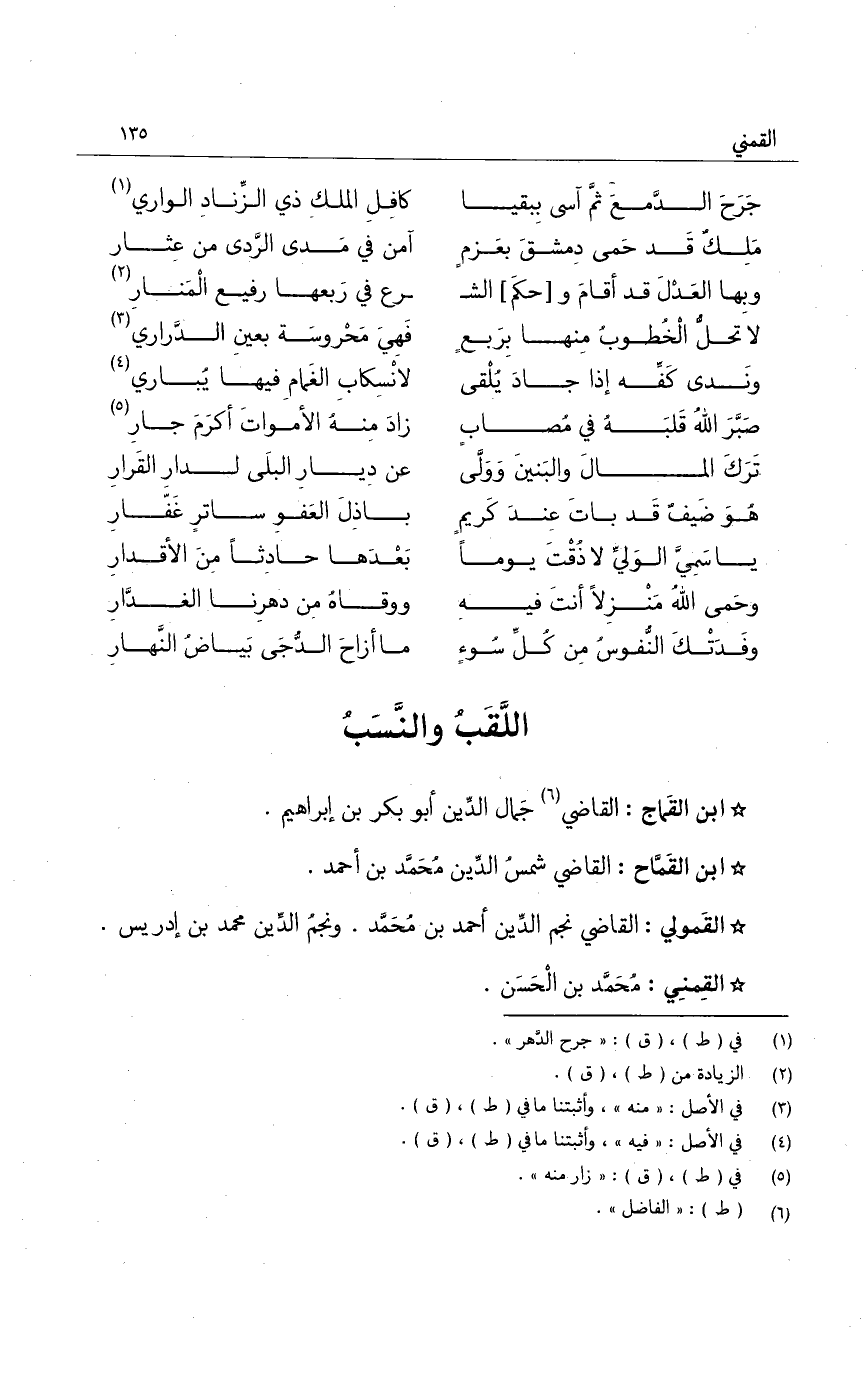 القمني ١٣٥
جَرَحَ الدَّمعَ ثمَّ آسى ببقيا كافل الملك ذي الزِّناد الواري(١)
مَلِكٌ قَد حَمى دمشقَ بعَزمٍ آمن في مَدى الرَّدى من عثار
وبها العَدْلَ قد أقامَ و [حكمَ] الشـ ـرع في رَبعها رفيع الْمَنار(٢)
لا تحلُّ الْخُطوبُ منها برَبعٍ فَهيَ مَحْروسَة بعين الدَّراري(٣)
ونَدى كَفِّه إذا جادَ يُلْقى لانْسكاب الغَمام فيها يُباري(٤)
صَبَّرَ اللهُ قَلبَهُ في مُصابٍ زادَ منهُ الأمواتَ أكرَمَ جارِ(٥)
تَرَكَ المالَ والبَنينَ وَوَلَّى عن ديار البلَى لدار القَرارِ
هُوَ ضَيفٌ قَد باتَ عندَ كَريمٍ باذلَ العَفو ساترٍ غَفَّارِ
يا سَمِيَّ الوَليِّ لا ذُقْتَ يوماً بَعْدَها حادثاً منَ الأقدارِ
وحَمى اللهُ مَنْزلاً أنتَ فيهِ ووقاهُ من دهرنا الغدَّارِ
وفَدَتْكَ النُّفوسُ من كُلِّ سُوءٍ ما أزاحَ الدُّجَى بَياضُ النَّهارِ
اللَّقَبُ والنَّسَبُ
☆ ابن القماج : القاضي(٦) جَمال الدِّين أبو بكر بن إبراهيم .
☆ ابن القَمَّاح : القاضي شمسُ الدِّين مُحَمَّد بن أحمد .
☆ القَمولي : القاضي نجم الدِّين أحمد بن مُحَمَّد . ونجمُ الدِّين محمد بن إدريس .
☆ القِمنِي : مُحَمَّد بن الْحَسَن .
(١) في ( ط ) ، ( ق ) : « جرح الدَّهر » .
(٢) الزيادة من ( ط ) ، ( ق ) .
(٣) في الأصل : « منه » ، وأثبتنا ما في ( ط ) ، ( ق ) .
(٤) في الأصل : « فيه » ، وأثبتنا ما في ( ط ) ، ( ق ) .
(٥) في ( ط ) ، ( ق ) : « زار منه » .
(٦) ( ط ) : « الفاضل » .